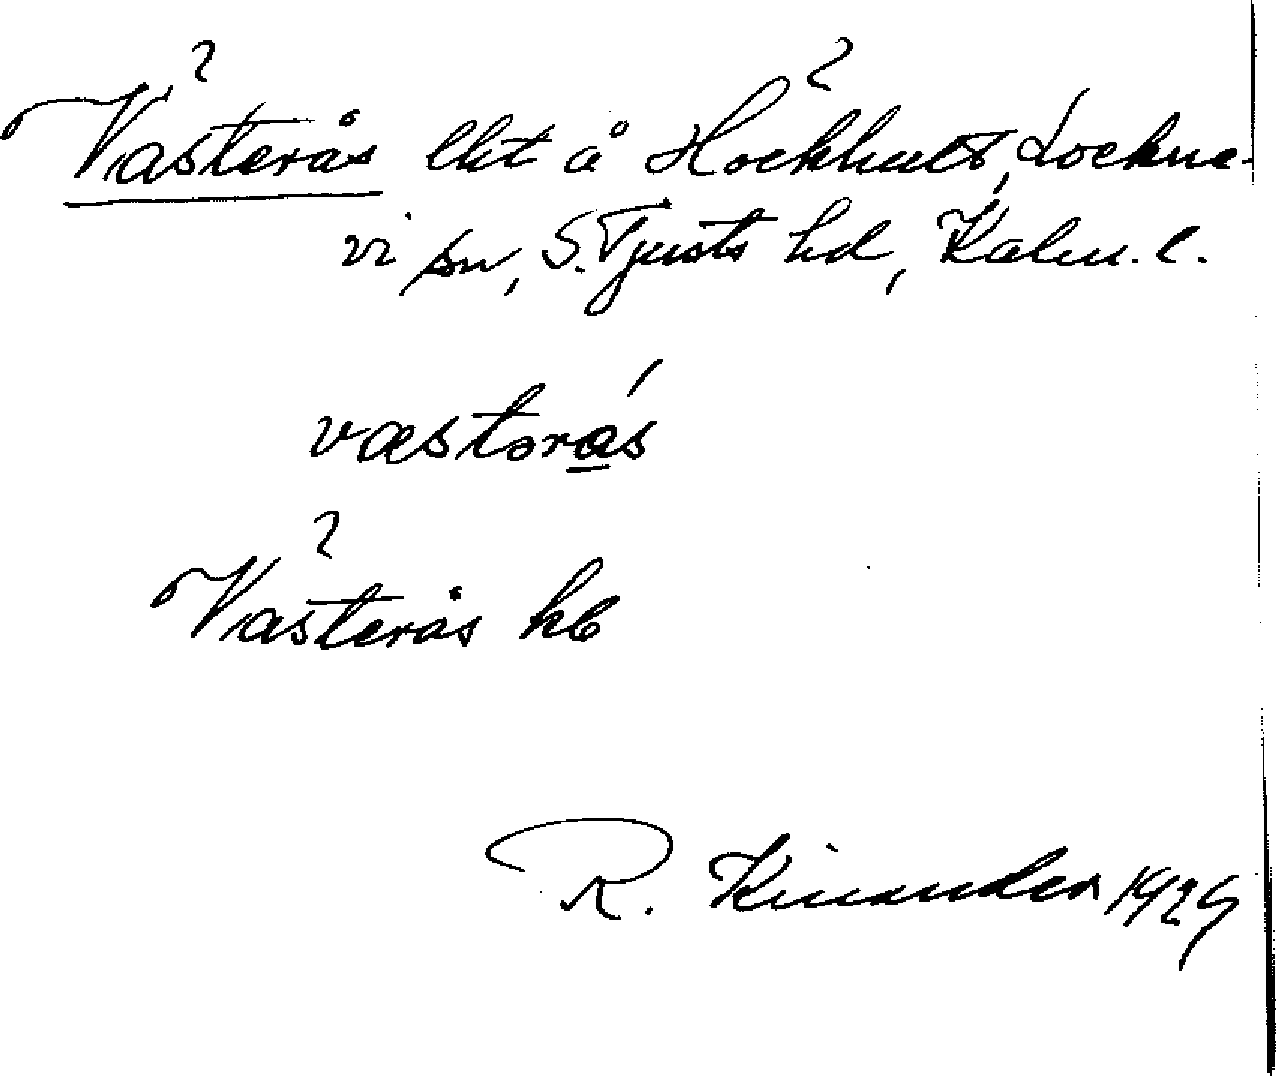 Västerås lht å Höckhult, Lockne-
vi sn, S. Tjusts hd, Kalm. l.
væstərás
Västerås hb
R. Kinander 1929